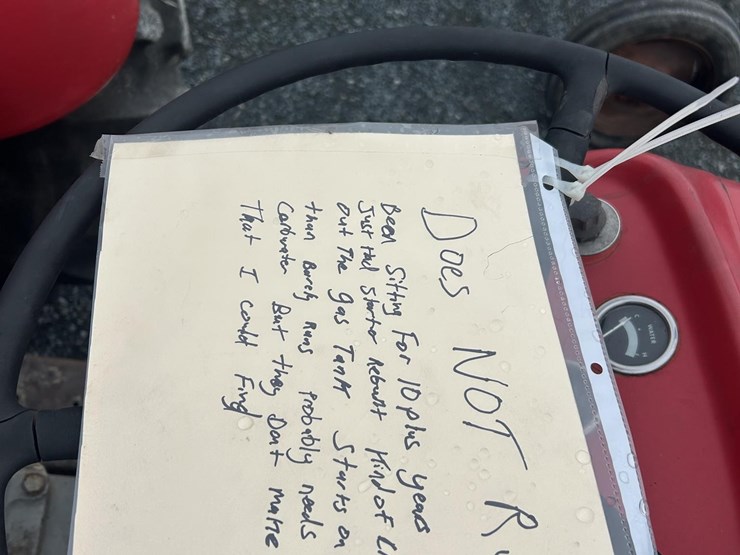 Does NOT R
Been Sitting For 10 plus years
Just Had Starter Rebuilt Kind of Cl
out The gas Tank Starts on
than Barely Runs probably needs
Carburater But they Dont make
That I could Find
C WATER H